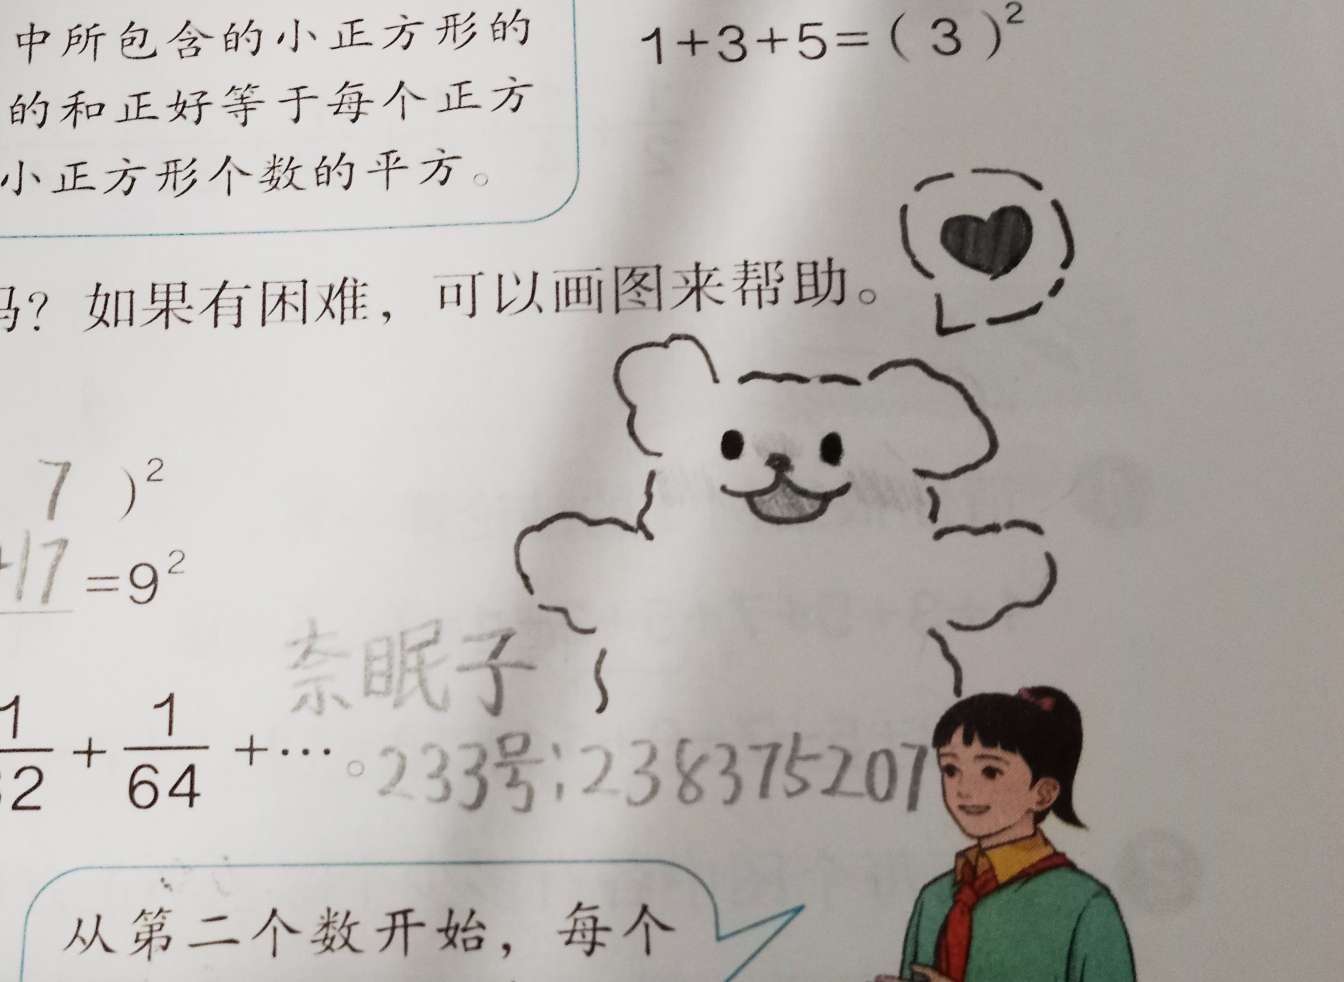 中所包含的小正方形的
的和正好等于每个正方
小正方形个数的平方。
1+3+5=(3)²
吗？如果有困难，可以画图来帮助。
7)²
+17=9²
奈眠子
1/64+…。
233号:238375207
从第二个数开始，每个